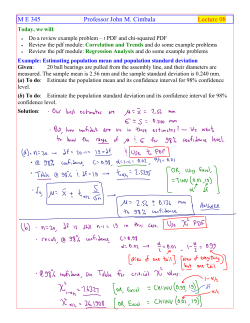 M E 345 Professor John M. Cimbala Lecture 08
Today, we will:
• Do a review example problem – t PDF and chi-squared PDF
• Review the pdf module: Correlation and Trends and do some example problems
• Review the pdf module: Regression Analysis and do some example problems
Example: Estimating population mean and population standard deviation
Given: 20 ball bearings are pulled from the assembly line, and their diameters are
measured. The sample mean is 2.56 mm and the sample standard deviation is 0.240 mm.
(a) To do: Estimate the population mean and its confidence interval for 98% confidence
level.
(b) To do: Estimate the population standard deviation and its confidence interval for 98%
confidence level.
Solution:
• Our best estimates are μ = x̄ = 2.56 mm
σ = S = 0.240 mm
• But, how confident are we in these estimates? — We want
to know the range of μ & σ for 98% confidence level
(a) n=20 → df = n-1 = 19 = df
Use t PDF
• @ 98% confidence, C=0.98,
• Table @ 98% & df=19 →
OR, using Excel,
• So, μ = x̄ ±
μ = 2.56 ± 0.136 mm
to 98% confidence
ANSWER
(b) • n=20, df is still n-1 = 19 in this case
Use χ² PDF
• recall, @ 98% confidence, C=0.98
[area of one tail]
• @ 98% confidence, use Table for critical χ² values
= 7.6327
OR, Excel = CHIINV(0.99, 19)
= 36.1908
OR, Excel = CHIINV(0.01, 19)